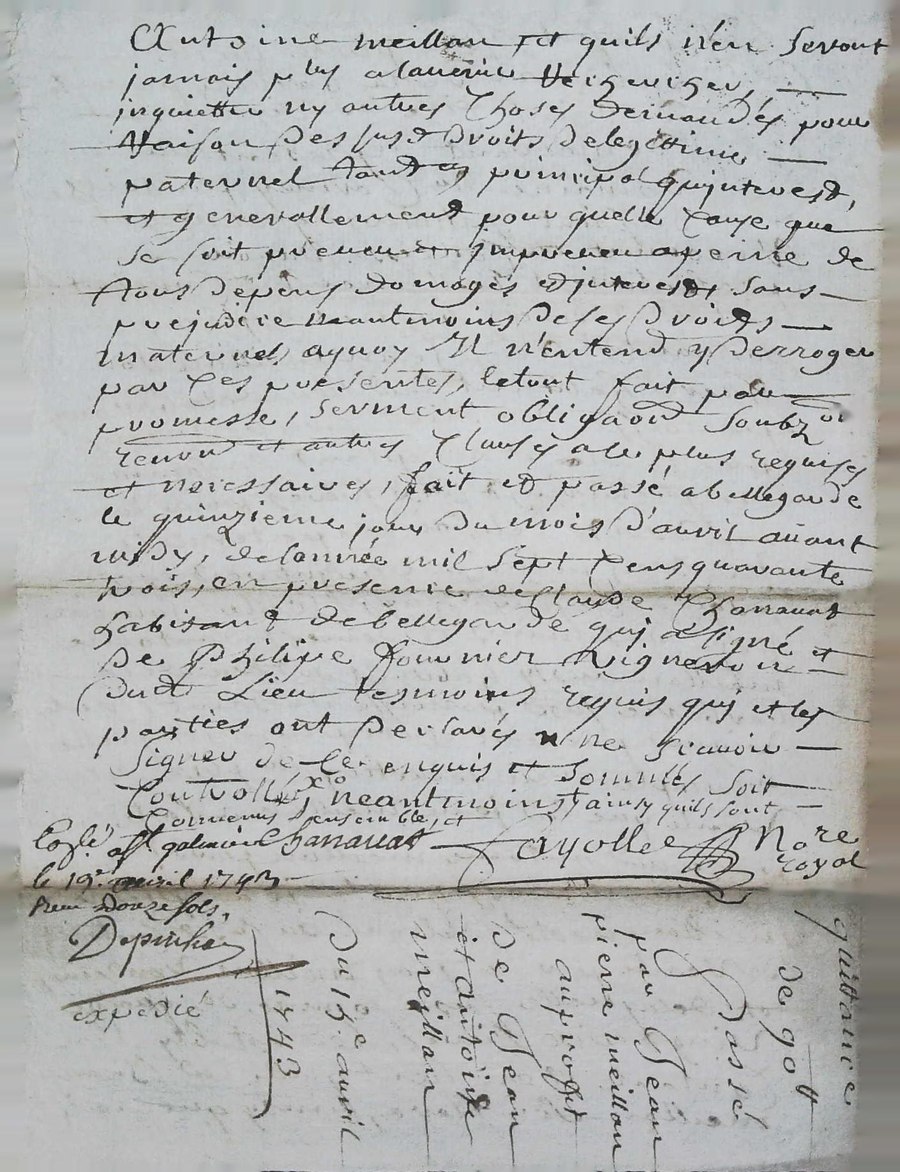 Antoine meillan et quils n'en seront
jamais plus alavenir Recherchez,
inquiettés ny autres choses demandés pour
Raison dessusd droits delegittime
paternel tant en principal qu'interest,
et generallement pour quelle cause que
se soit preveu et impreveu apeine de
tous depens domages et interests, sans
prejudice neantmoins deses droits
maternels aquoy Il n'entend y derroger
par ces presentes, letout fait par
promesse, serment obligaon soubz on
renon et autres clauses ale plus requises
et necessaires, fait et passé abellegarde
le quinzieme jour du mois d'avril avant
midy, delannée mil sept cens quarante
trois, en presence de Claude Chanavat
habitant debellegarde qui a signé et
de philipe fournier vigneron
dud Lieu tesmoins requis qui et les
parties ont declarés ne scavoir
signer de ce enquis et sommés soit
Controllé, neantmoins ainsy quils sont
Convenus ensemble, et
Chanavat Fayolle Nore
royal
le 19e avril 1743
Receu douze sols,
expedié
quittance
de 90 tt
Passé
par Jean
pierre meillan
auproffit
de Jean
et antoine
meillan
Du 15e avril
1743